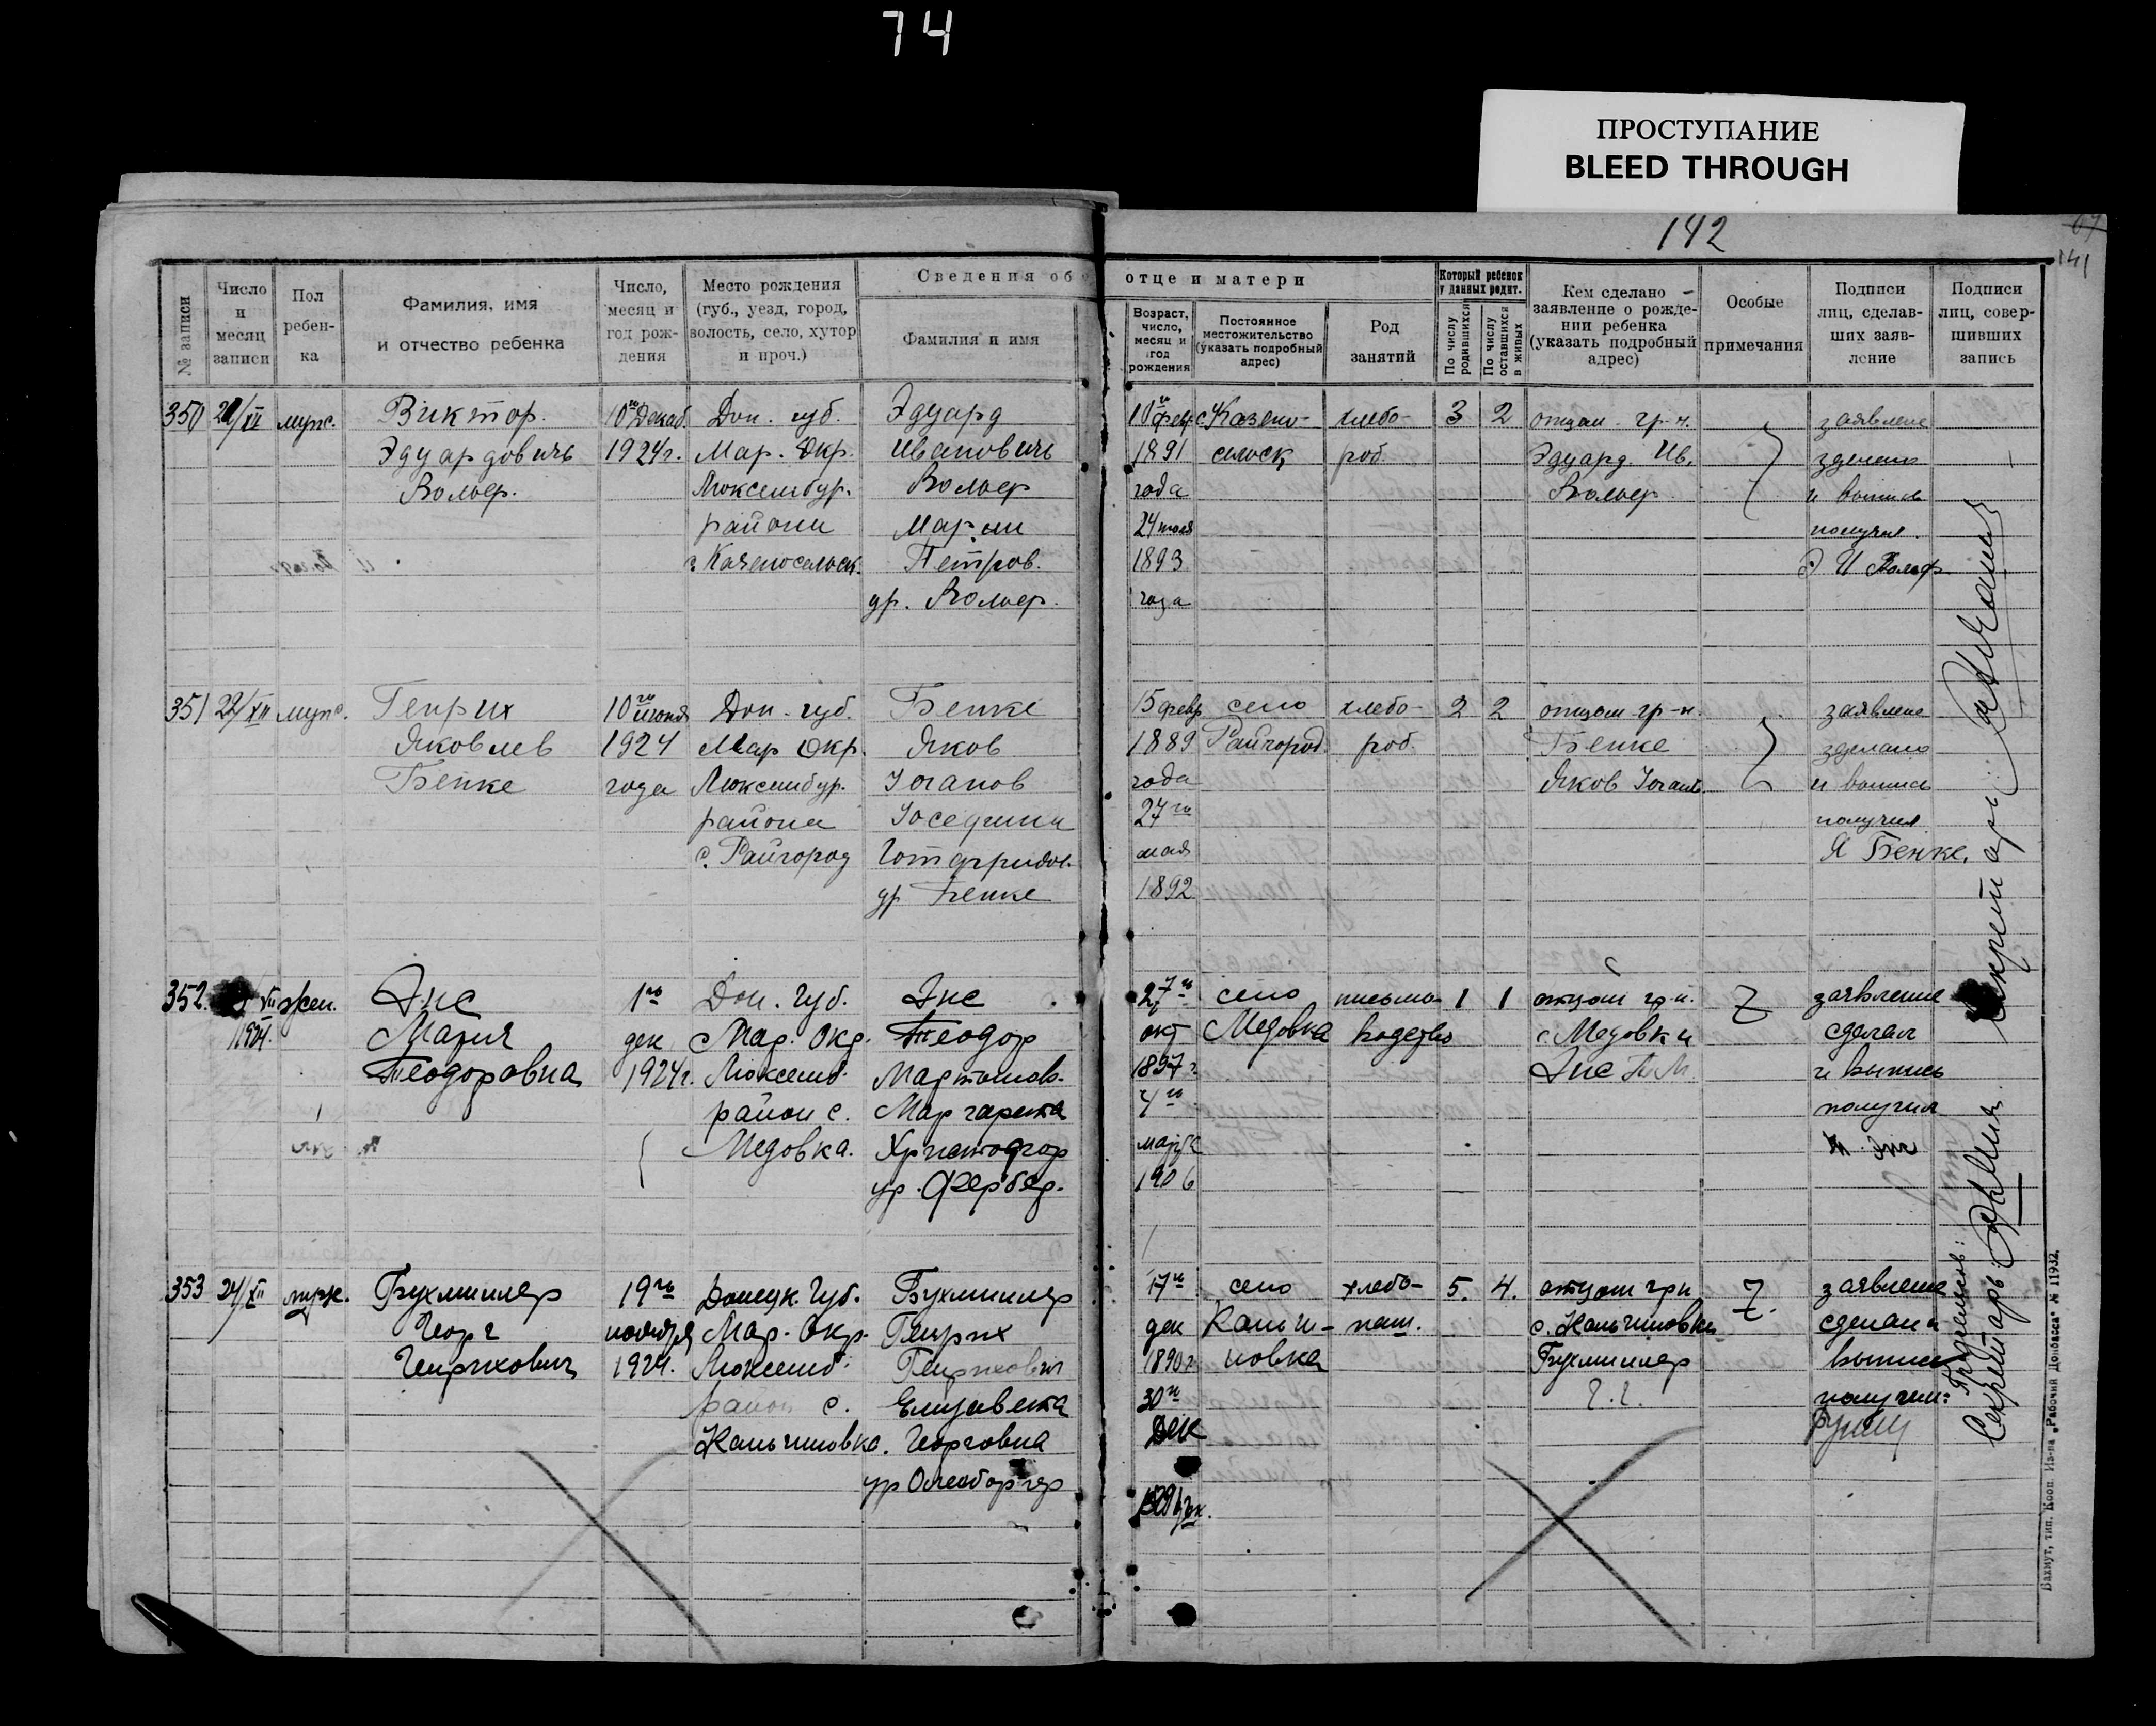 74
ПРОСТУПАНИЕ
BLEED THROUGH
142
67
141
№ записи
Число и месяц записи
Пол ребен-ка
Фамилия, имя и отчество ребенка
Число, месяц и год рож-дения
Место рождения (губ., уезд, город, волость, село, хутор и проч.)
Сведения об отце и матери
Фамилия и имя
Возраст, число, месяц и год рождения
Постоянное местожительство (указать подробный адрес)
Род занятий
Который ребенок у данных родит.
По числу родившихся
По числу оставшихся в живых
Кем сделано заявление о рожде-нии ребенка (указать подробный адрес)
Особые примечания
Подписи лиц, сделав-ших заяв-ление
Подписи лиц, совер-шивших запись
350
муж.
Виктор.
Эдуардовичь
Вольф.
10го Декаб.
1924г.
Дон. губ.
Мар. Окр.
Люксембур.
района
с Казеносельск.
Эдуард
Ивановичь
Вольф
Марии
Петров.
ур. Вольф.
10го февр
1891
года
24 июля
1893
года
с. Казено-
сельск
хлебо-
роб
3
2
отцом гр-н.
Эдуард. Ив.
Вольф
заявлене
зделано
и выпись
получил.
Э И Вольф
351
22/XII
муж.
Генрих
Яковлев
Бенке
10го июня
1924
года
Дон. губ.
Мар Окр.
Люксембур.
района
с. Райгород
Бенке
Яков
Иоганов
Готфридов.
ур Бенке
15 февр
1889
года
27го
мая
1892
село
Райгород.
хлебо-
роб
2
2
отцом гр-н.
Бенке
Яков Иоганов.
заявлене
зделано
и выпись
получил
Я Бенке.
352.
XII
1924.
жен.
Энс
Мария
Теодоровна
1го
дек
1924г.
Дон. Губ.
Мар. Окр.
Люксемб.
район с.
Медовка.
Энс
Теодор
Мартынов.
Маргарета
Христофор
ур. Фербер.
27го
окт
1897г.
4го
марта
1906
село
Медовка
письмо-
водство
1
1
отцом гр-н.
с Медовки
Энс Т. М.
заявление
сделал
и выпись
получил
Т. Энс
353
24/XII
муж.
Бухмиллер
Георг
Генрихович
19го
ноября
1924.
Донецк. Губ.
Мар. Окр.
Люксемб.
район с.
Кальчиновка.
Бухмиллер
Генрих
Генрихович
Елизавета
Георговна
17го
дек
1890г.
30го
Дек
село
Кальчи-
новка
хлебо-
паш.
5.
4.
отцом гр-н
с. Кальчиновки
Бухмиллер
Г. Г.
заявление
сделал и
выпись
получил:
Секретарь:
Секретарь:
Бахмут, тип. Кооп. Из-ва „Рабочий Донбасса“ № 11932.